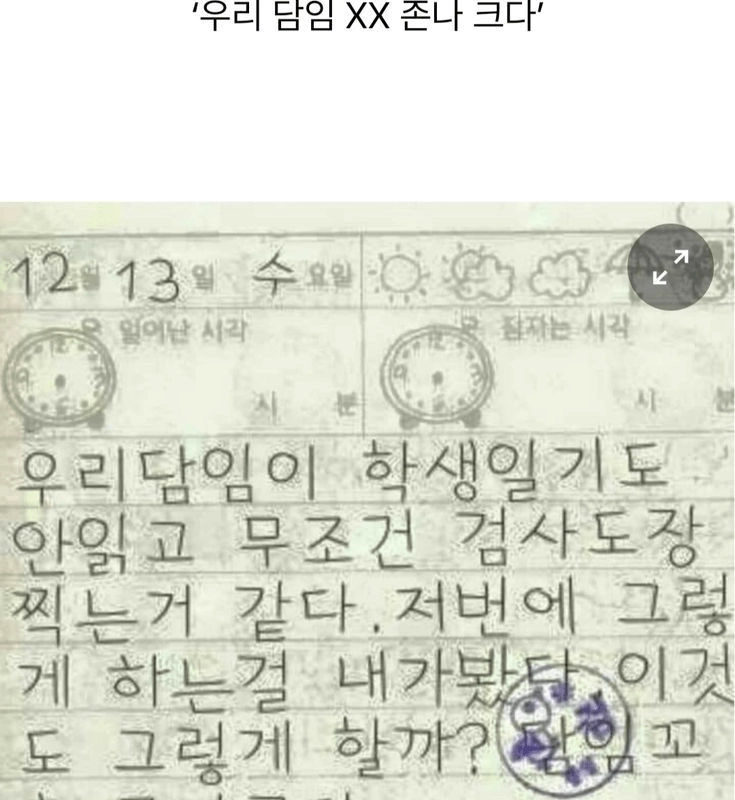 ‘우리 담임 XX 존나 크다’
12월 13일 수요일
일어난 시각 잠자는 시각
시 분 시 분
우리담임이 학생일기도
안읽고 무조건 검사도장
찍는거 같다. 저번에 그렇
게 하는걸 내가봤다. 이것
도 그렇게 할까? 담임 꼬